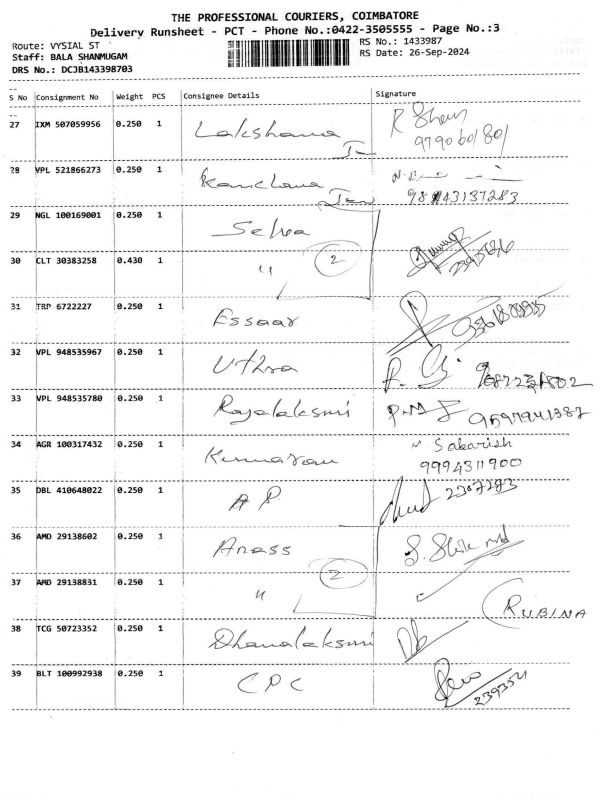 THE PROFESSIONAL COURIERS, COIMBATORE
Delivery Runsheet - PCT - Phone No.:0422-3505555 - Page No.:3
Route: VYSIAL ST
RS No.: 1433987
Staff: BALA SHANMUGAM
RS Date: 26-Sep-2024
DRS No.: DCJB143398703
S No Consignment No Weight PCS Consignee Details Signature
27 IXM 507059956 0.250 1 Lakshana
28 VPL 521866273 0.250 1 Kanchana
29 NGL 100169001 0.250 1 Selva
30 CLT 30383258 0.430 1 " 2
31 TRP 6722227 0.250 1 Essaar
32 VPL 948535967 0.250 1 Uthra
33 VPL 948535780 0.250 1 Rajalaksmi
34 AGR 100317432 0.250 1 Kumaran Sabarish
9994311900
35 DBL 410648022 0.250 1 A P
36 AMD 29138602 0.250 1 Anass
37 AMD 29138831 0.250 1 " 2 RUBINA
38 TCG 50723352 0.250 1 Dhanalaksmi
39 BLT 100992938 0.250 1 CPC